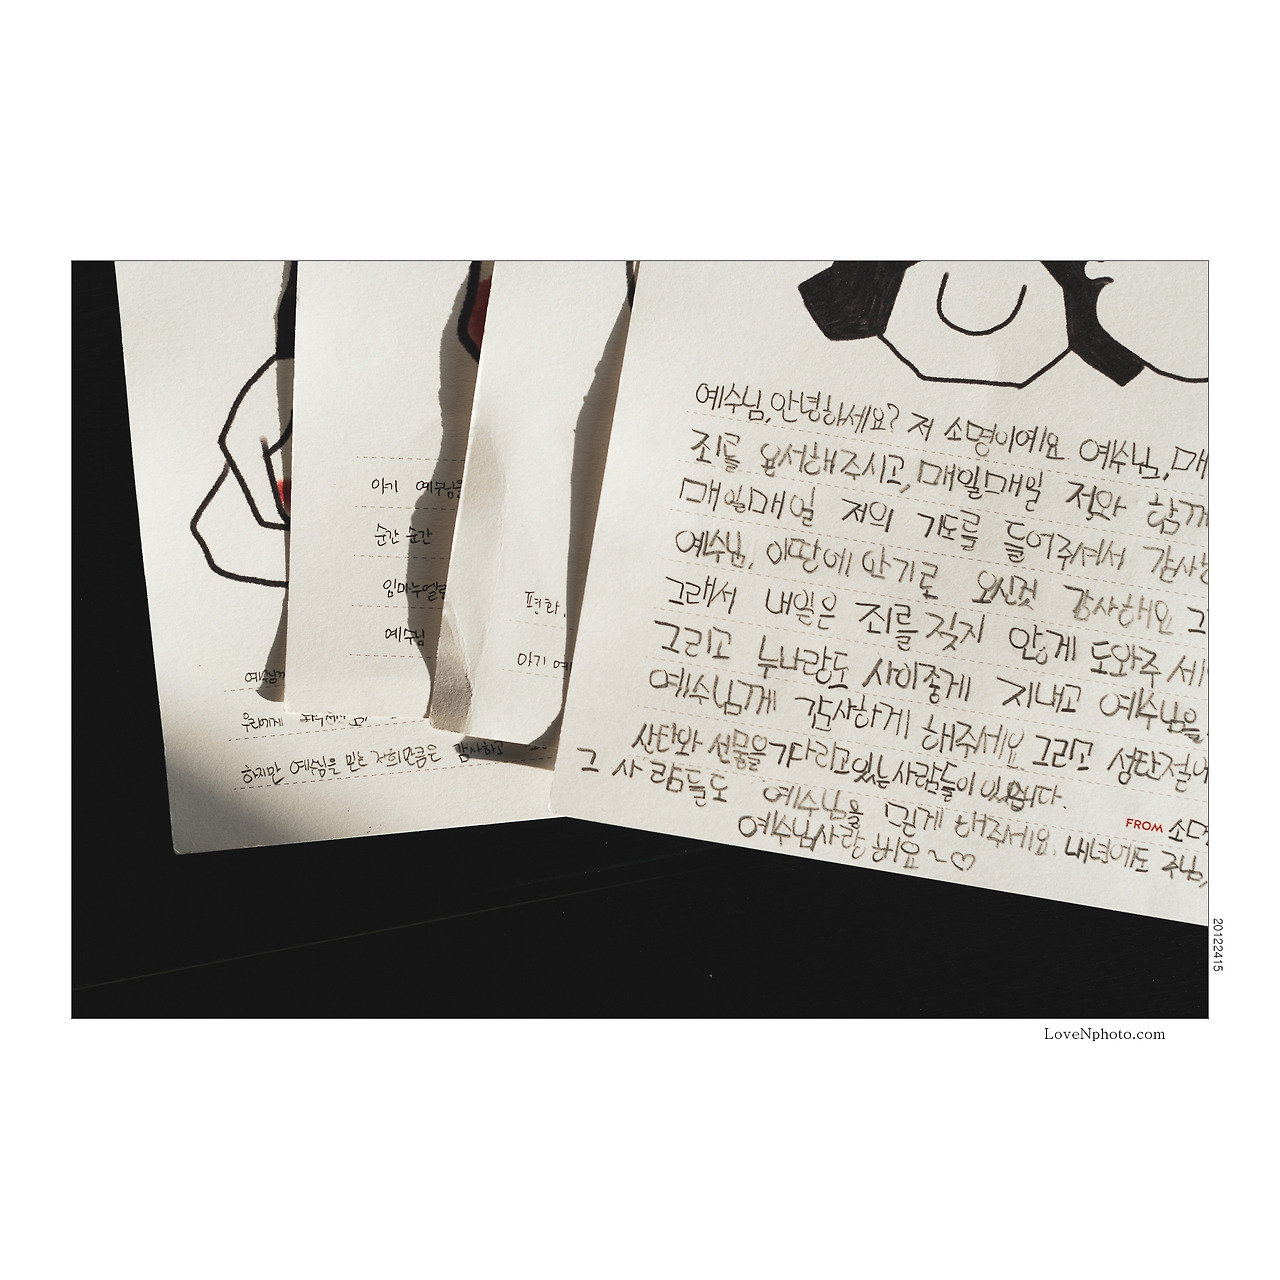 예수님께
우리에게
하지만 예수님을 믿는 저희만큼은 감사하고
아기 예수님을
순간 순간
임마누엘
예수님
편화.
아기 예
예수님,안녕하세요? 저 소명이에요 예수님, 매
죄를 용서해주시고, 매일매일 저와 함께
매일매일 저의 기도를 들어주셔서 감사
예수님, 이땅에 안기로 오신것 감사해요 그
그래서 내일은 죄를 짖지 안게 도와주세
그리고 누나랑도 사이좋게 지내고 예수님을
예수님께 감사하게 해주세요 그리고 성탄절에
산타와 선물을 기다리고있는사람들이 있습니다.
그 사람들도 예수님을 믿게 해주세요. 내년에도 주님,
FROM 소명
예수님사랑해요~♡
20122415
LoveNphoto.com